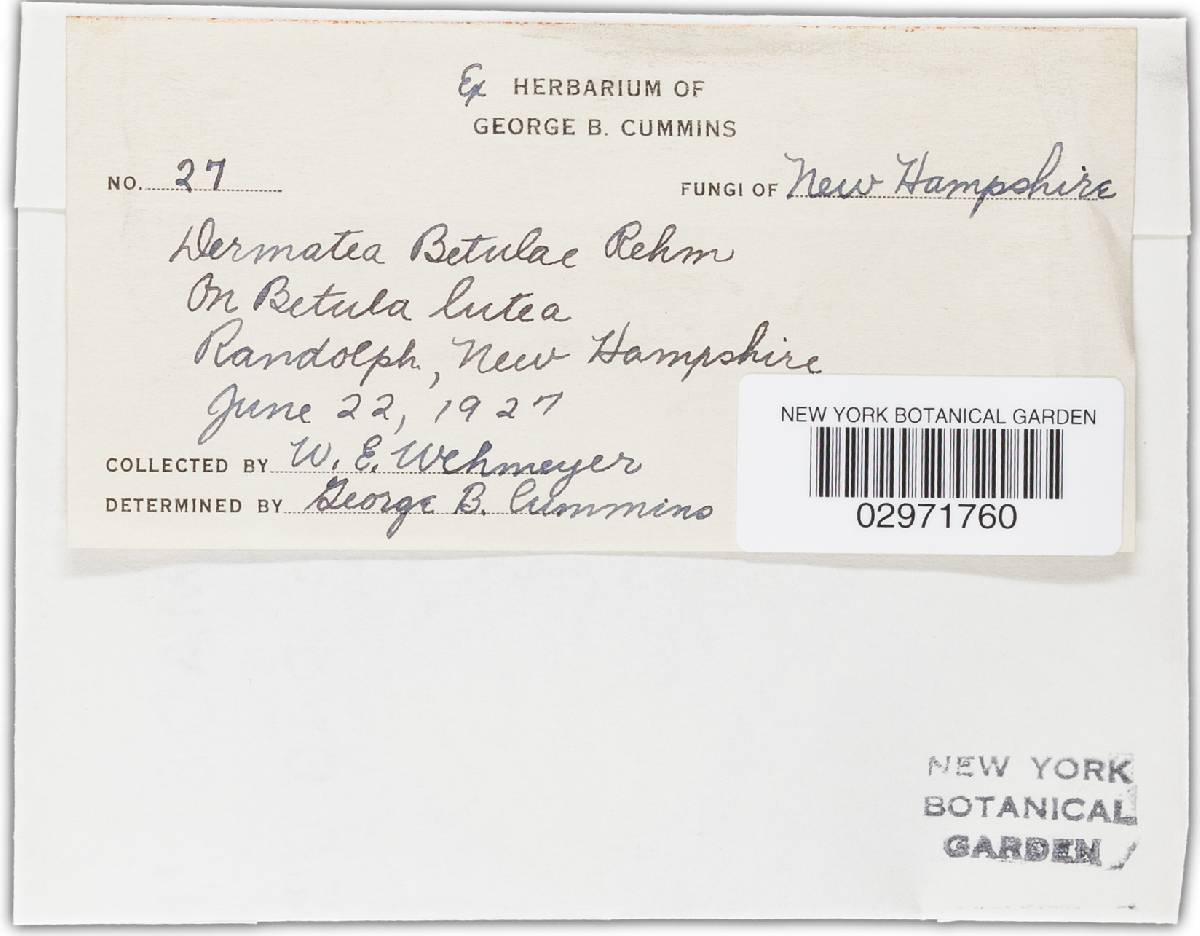 Ex HERBARIUM OF
GEORGE B. CUMMINS
NO. 27
FUNGI OF New Hampshire
Dermatea Betulae Rehm
On Betula lutea
Randolph, New Hampshire
June 22, 1927
COLLECTED BY W. E. Wehmeyer
DETERMINED BY George B. Cummins
NEW YORK BOTANICAL GARDEN
02971760
NEW YORK
BOTANICAL
GARDEN